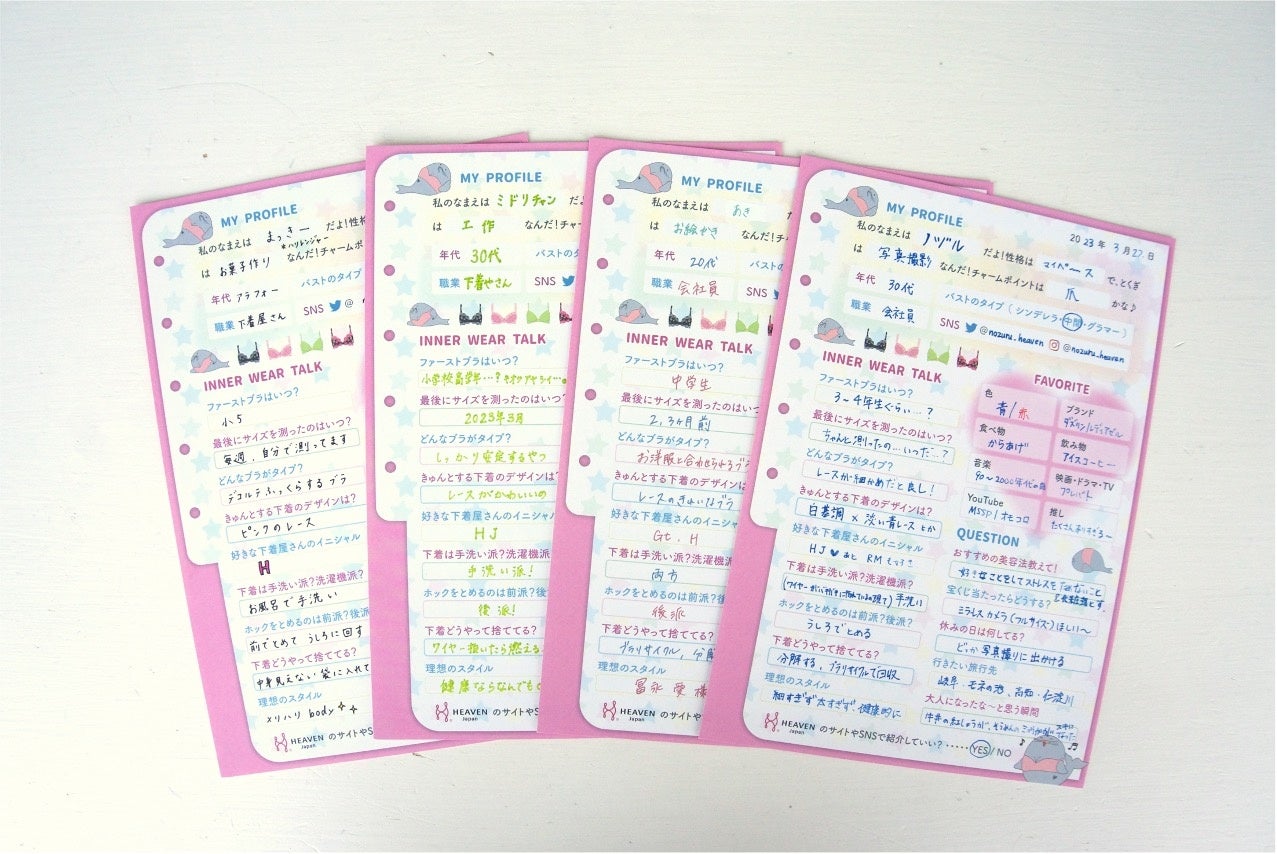 MY PROFILE
私のなまえは まっきー だよ!性格
*ハリレンジャー
は お菓子作り なんだ!チャームポ
年代 アラフォー バストのタイプ
職業 下着屋さん SNS @
INNER WEAR TALK
ファーストブラはいつ?
小5
最後にサイズを測ったのはいつ?
毎週、自分で測ってます
どんなブラがタイプ?
デコルテふっくらするブラ
きゅんとする下着のデザインは?
ピンクのレース
好きな下着屋さんのイニシャル
H
下着は手洗い派?洗濯機派?
お風呂で手洗い
ホックをとめるのは前派?後派
前でとめて うしろに回す
下着どうやって捨ててる?
中身見えない袋に入れて
理想のスタイル
メリハリ body
HEAVEN Japan のサイトやS
MY PROFILE
私のなまえは ミドリチャン だよ
は 工作 なんだ!チャーム
年代 30代 バストのタ
職業 下着やさん SNS
INNER WEAR TALK
ファーストブラはいつ?
小学校高学年…?
最後にサイズを測ったのはいつ?
2023年3月
どんなブラがタイプ?
しっかり安定するやつ
きゅんとする下着のデザインは
レースがかわいいの
好きな下着屋さんのイニシャ
HJ
下着は手洗い派?洗濯機派
手洗い派!
ホックをとめるのは前派?後
後派!
下着どうやって捨ててる?
ワイヤー抜いたら燃える
理想のスタイル
健康ならなんでも
HEAVEN Japan のサイトや
MY PROFILE
私のなまえは あき だ
は お絵かき なんだ!チャー
年代 20代 バストの
職業 会社員 SNS
INNER WEAR TALK
ファーストブラはいつ?
中学生
最後にサイズを測ったのはいつ
2,3ヶ月前
どんなブラがタイプ?
お洋服と合わせられるブラ
きゅんとする下着のデザインは
レースのきれいなブラ
好きな下着屋さんのイニシャル
Gt. H
下着は手洗い派?洗濯機派?
両方
ホックをとめるのは前派?後
後派
下着どうやって捨ててる?
ブラリサイクル、分別
理想のスタイル
冨永愛様
HEAVEN Japan のサイトやS
MY PROFILE
2023年 3月27日
私のなまえは ノヅル だよ!性格は マイペース で、とくぎ
は 写真撮影 なんだ!チャームポイントは 爪 かな♪
年代 30代 バストのタイプ(シンデレラ・中間・グラマー)
職業 会社員 SNS @nozuru_heaven @nozuru_heaven
INNER WEAR TALK
ファーストブラはいつ?
3〜4年生ぐらい…?
最後にサイズを測ったのはいつ?
ちゃんと測ったの…いつだ…?
どんなブラがタイプ?
レースが細かめだと良し!
きゅんとする下着のデザインは?
白基調 × 淡い青レースとか
好きな下着屋さんのイニシャル
HJ♥あと RM
下着は手洗い派?洗濯機派?
手洗い
ホックをとめるのは前派?後派?
うしろでとめる
下着どうやって捨ててる?
分解する、ブラリサイクルで回収
理想のスタイル
細すぎず太すぎず、健康的に
FAVORITE
色 青/赤
ブランド
食べ物 からあげ
飲み物 アイスコーヒー
音楽 90〜2000年代の曲
映画・ドラマ・TV プレバト
YouTube MSSP/オモコロ
推し たくさんありすぎる〜
QUESTION
おすすめの美容法教えて!
好きなことをしてストレスをためないこと
宝くじ当たったらどうする?
ミラーレスカメラ(フルサイズ)ほしい〜
休みの日は何してる?
どっか写真撮りに出かける
行きたい旅行先
岐阜・モネの池、高知・仁淀川
大人になったな〜と思う瞬間
HEAVEN Japan のサイトやSNSで紹介していい? ····· YES / NO